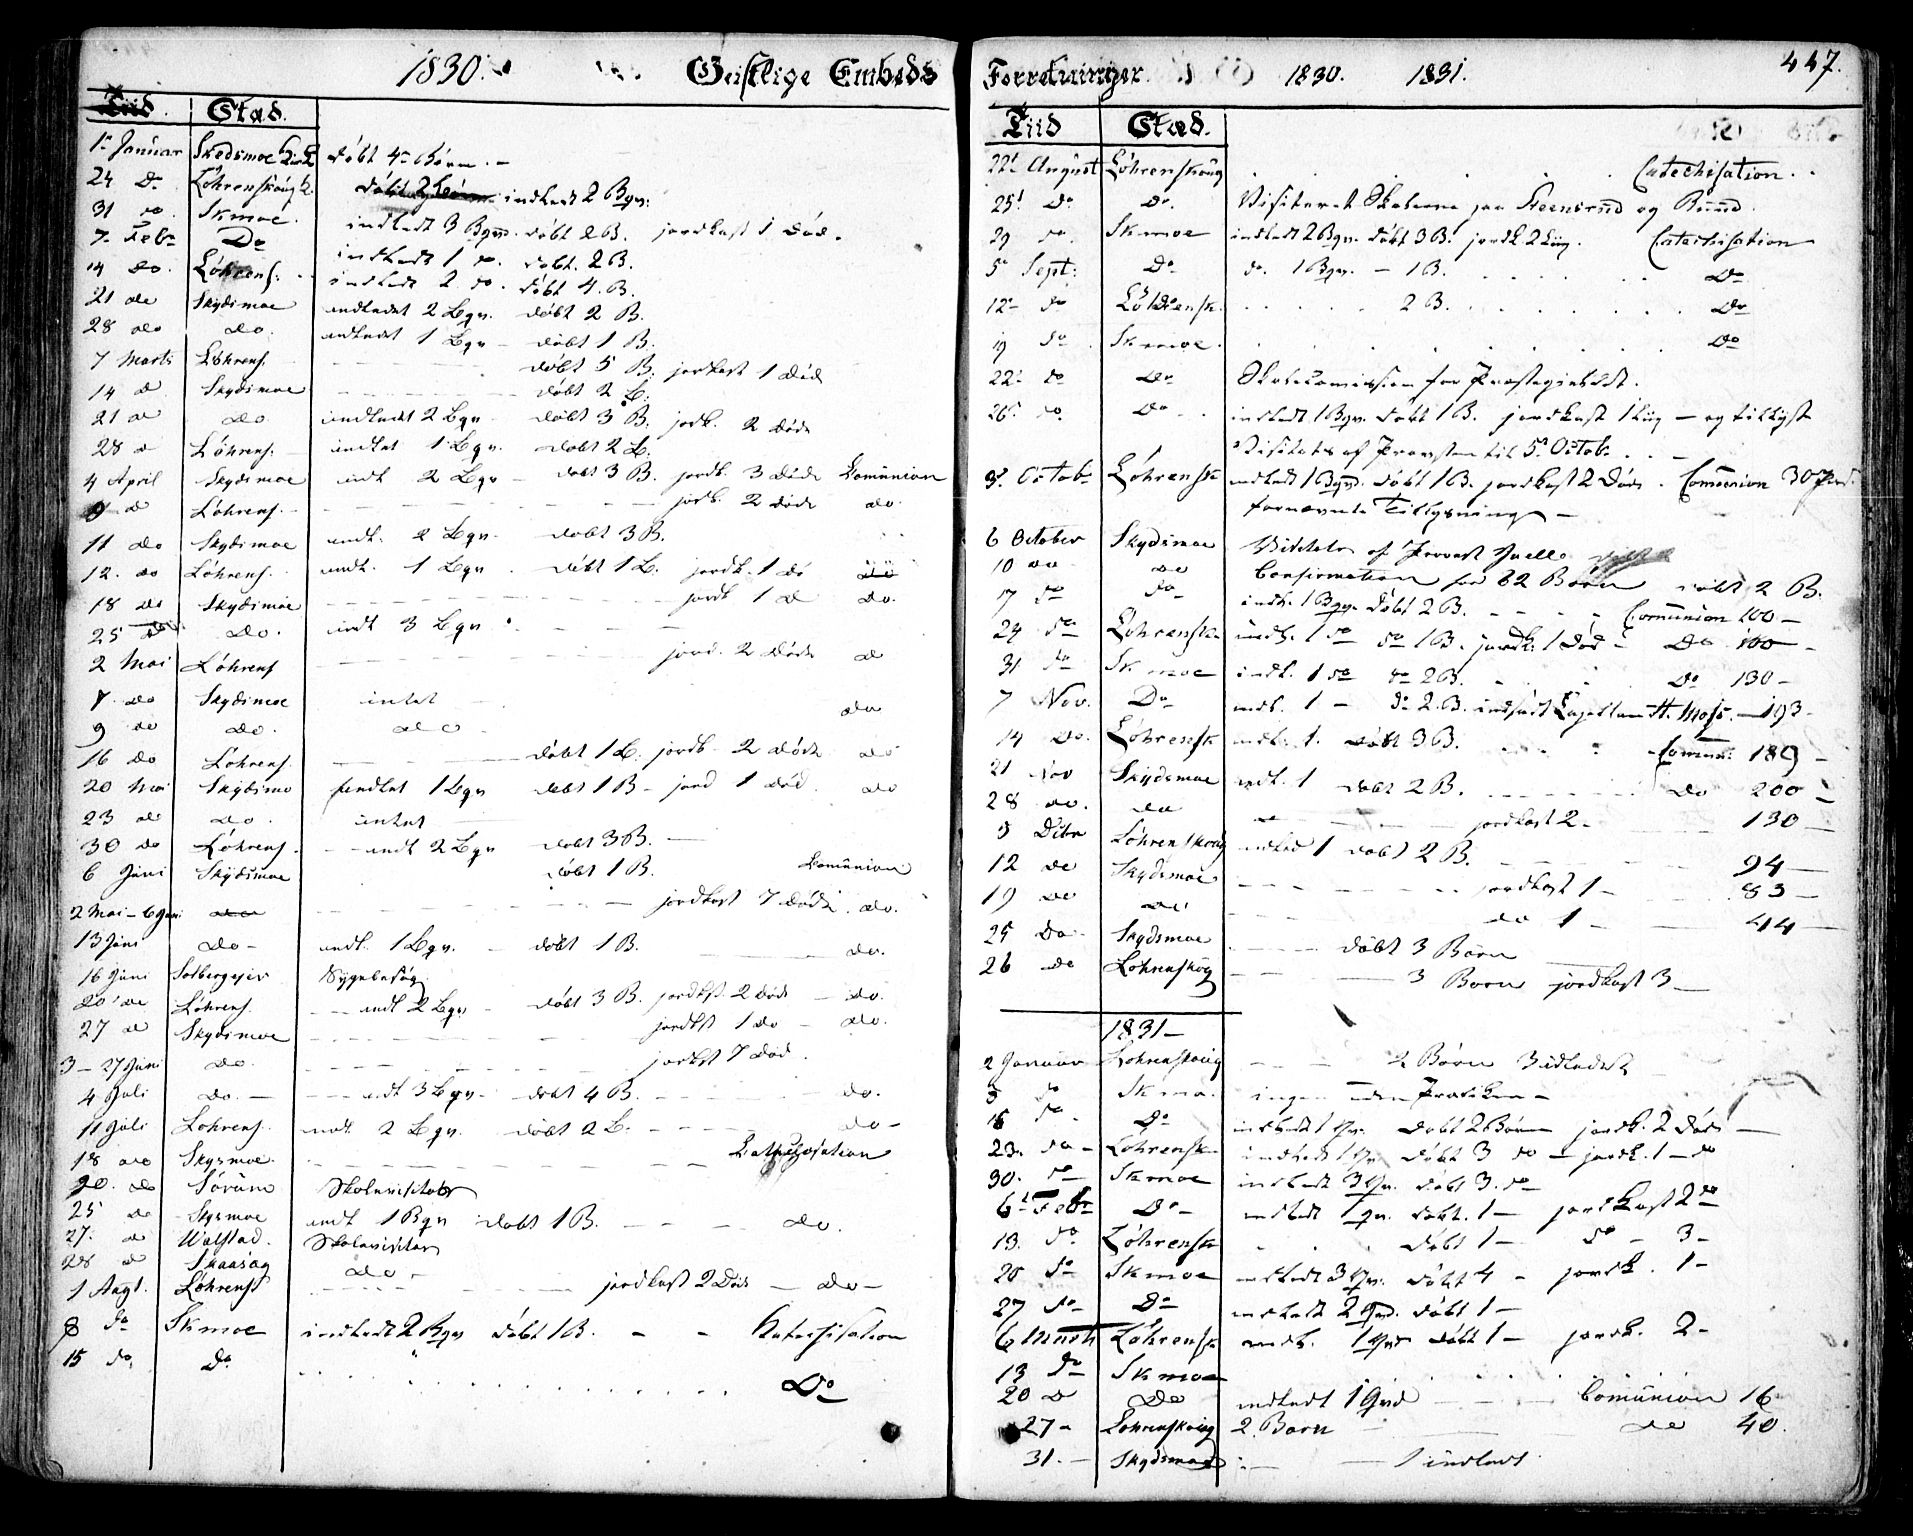 1830. Geistlige Embeds
Tiid. Stad.
1ste Januar Skedsmoe Kirk döbt 4re Börn. -
24 Do Löhrenskoug K. döbt indledt 2 Bqv:
31 do. Skmoe. indledt 3 Bqvd. döbt 2 B. jordkast 1 död.
7 Feb. Do indledt 1 do. döbt. 2 B.
14 do. Löhrens: indledt 2 do. döbt 4. B.
21 do Skydsmoe indledet 2 Bqv. döbt 2 B.
28 do do. indledt 1 Bqv - döbt 1 B.
7 Marts Löhrens. - döbt 5 B. jordkast 1 död
14 d Skydsmoe - döbt 2 B.
21 do do. indledt 2 Bqv. döbt 3 B. jordk. 2 döde
28 d Löhrens. indledt 1 Bqv. döbt 2 B.
4 April Skydsmoe indt 2 Bqv - döbt 3 B. jordk. 3 döde Comunion
9 d Löhrens. - jordk. 2 döde do.
11 do Skydsmoe indt. 2 Bqv. döbt 3 B.
12. do Löhrens. indt. 1 Bqv. döbt 1 B. jordk. 1 dö do
18 do Skydsmoe - jordk 1 d do.
25 do do. indt 3 Bqv.
2 Mai Löhrens - jord. 2 döde do
7. do Skydsmoe intet -
9 do do. do do
16 do Löhrens. - döbt 1 B. jordk - 2 döde do
20 Mai Skydsmo indledt 1 Bqv döbt 1 B - jord 1 död. do
23 do do. intet
30 do Löhrens. - indt 2 Bqv döbt 3 B. -
6 Juni Skydsmoe döbt 1 B. Comunion
2 Mai - 6 Juni - jordkast 7 döde. do.
13 Juni do - indt. 1 Bqv. - döbt 1 B. - do.
16 Juni Solbergejer Sygebesög
20 do Löhrens. - indt 2 Bqv - döbt 3 B. jordkst. 2 döde - do.
27 do Skydsmoe - jordkst 1 do - do.
3 - 27 Juni do. - jordkst 7 död.
4 Juli do. - indt 3 Bqv - döbt 4 B. - do.
11 Juli Löhrens. indt. 2 Bqv. döbt 2 B. - do -
18 do Skysmoe. - Catheqisation
20. do Sörum Skolevisitats
25 do Skysmoe indt 1 Bqv döbt 1 B. - - - do.
27. do Wolstad. Skolevisitas
28 d Skaasög do -
1 Augt. Löhrens - jordkast 2 Döde - do -
8 do Skmoe indledt 2 Bqv döbt 1 B. - - Katechisation
15 do. Do. Do
Forretninger 1830. 1831. 447.
Tiid Stad.
22de August Löhrenskoug Catechisation.
25d Do Do. Visiteret Skolerne paa Steensrud og Ruud.
29 do. Skmoe indledt 2 Bqv. döbt 3 B. jordk 2 Liig. Catechisation
5te Sept: Do do. 1 Bqv. - 1 B. Do
12te do Löhrensk. 2 B. Do
19 do Skmoe. Do
22. do Do Skolecomission for Præstegieldet.
26. do Do indledt 1 Bqv. döbt 1 B. jordkast 1 Liig - og tillyst
Visitats af Provsten til 5te Octob.
3. Octob. Löhrensk indledt 1 Bqvd. döbt 1 B. jordkast 2 döde. Comunion 30 Pers.
fornævnte Tillysning -
6 October Skydsmoe Visitats af Provst Juell
10 do do Confirmation for 82 Börn döbt 2 B.
17 do do indt. 1 Bqv. döbt 2 B. - Comunion 100 -
24 do Löhrensk. indt. 1 do do 1 B. jordk. 1 död - Do 100 -
31 do Skmoe indt. 1 do do 2 B. Do 130 -
7 Nov. Do indt. 1 - do 2. B. indsadt Capellan H. Moss. - 193 -
14 Do. Löhrensk indt. 1. döbt 3 B. Comun: 189 -
21 Nov Skydsmoe indt. 1 döbt 2 B. - do 200 -
28 do. do - jordkast 2 - 130 -
5 Dcbr Löhrenskoug indled 1 döbt 2 B. - 94 -
12 do Skydsmoe - jordkast 1 - 83 -
19 do do - do 1 - 44 -
25 Do Skydsmoe - döbt 3 Börn
26 do Löhrenskog - 3 Born jordkast 3 -
1831 -
2 Januar Löhrenskoug - - 2 Börn 3 idledet
9 do Skmo. ingen uden Prædiken -
16 do - Do indledt 1 qv. döbt 2 Börn jordk. 2 döde -
23. do - Löhrensk - indledt 1 qv döbt 3 do - jordk. 1 - do
30. do Skmoe indledt 3 qv. döbt 3. do
6te Feb. Do - indledt 1 qv. döbt. 1 - jordkast 2 do
13. do Löhrensk döbt 1 - do - 3 -
20 do Skmoe indledt 3 qv. döbt 4 - jordk. 1 -
27 do Do indledt 2 qvd. döbt 1 -
6 Marts Löhrensk. indt. 1 qvd döbt 1 - jordk. 2 -
13 do Skmoe
20 d Do indledt 1 Qvd - Comunion 16
27 - Löhrenskoug 2 Börn - do 40.
31. - Skydsmoe - 1 indledt.